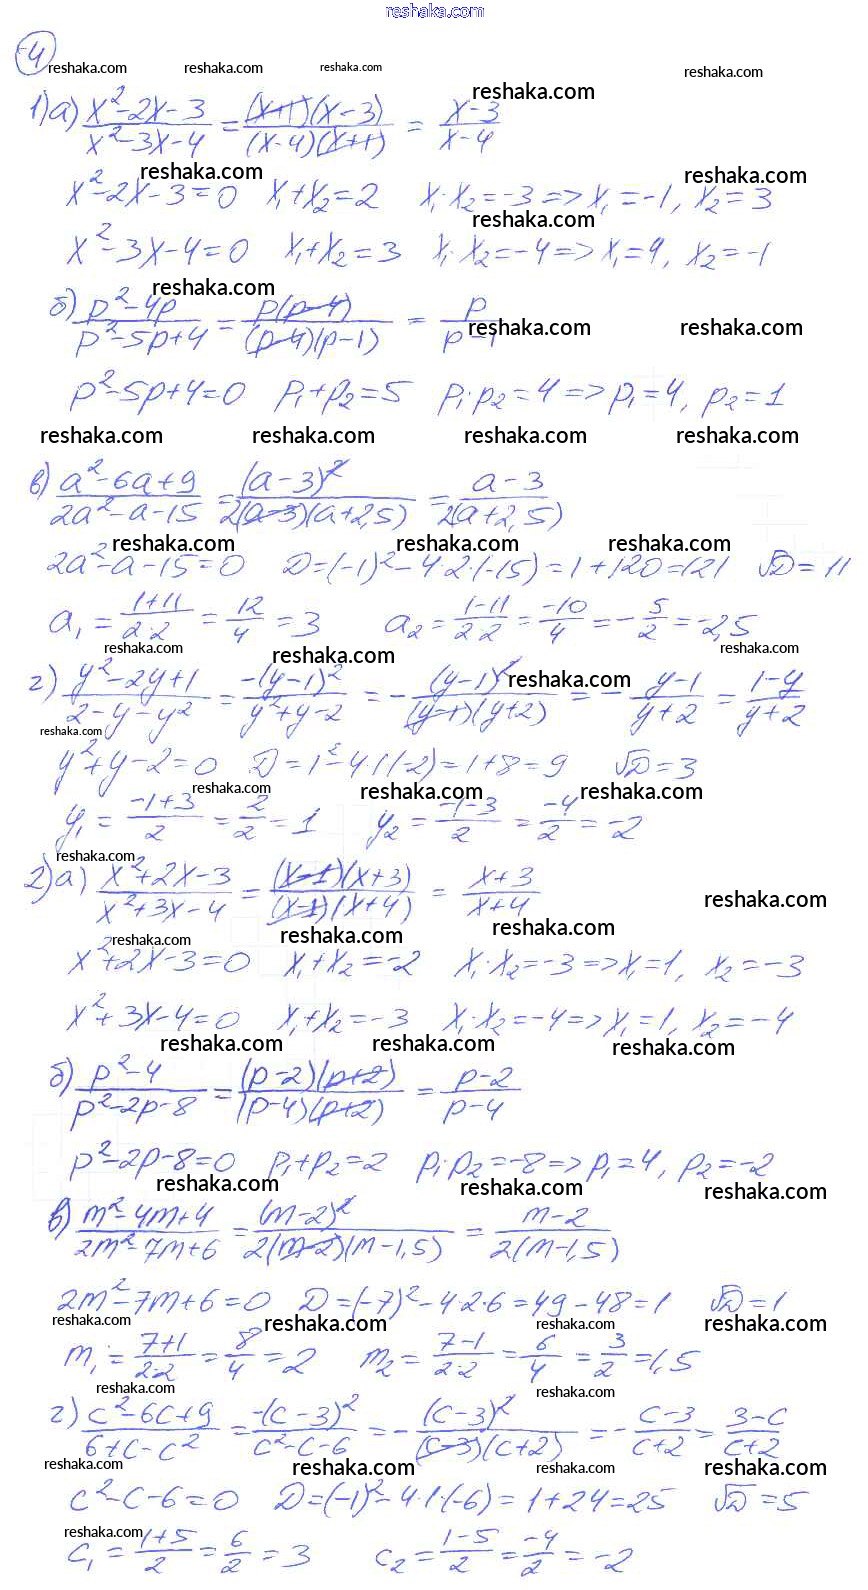 reshaka.com
-4
reshaka.com reshaka.com reshaka.com reshaka.com
reshaka.com
1)а) (x²-2x-3)/(x²-3x-4) = ((x+1)(x-3))/((x-4)(x+1)) = (x-3)/(x-4)
reshaka.com reshaka.com
x²-2x-3=0 x₁+x₂=2 x₁·x₂=-3=>x₁=-1, x₂=3
reshaka.com
x²-3x-4=0 x₁+x₂=3 x₁·x₂=-4=>x₁=4, x₂=-1
reshaka.com
б) (p²-4p)/(p²-5p+4) = (p(p-4))/((p-4)(p-1)) = p/(p-1)
reshaka.com reshaka.com
p²-5p+4=0 p₁+p₂=5 p₁·p₂=4=>p₁=4, p₂=1
reshaka.com reshaka.com reshaka.com reshaka.com
в) (a²-6a+9)/(2a²-a-15) = (a-3)²/(2(a-3)(a+2,5)) = (a-3)/(2(a+2,5))
reshaka.com reshaka.com reshaka.com
2a²-a-15=0 D=(-1)²-4·2·(-15)=1+120=121 √D=11
a₁=(1+11)/(2·2)=12/4=3 a₂=(1-11)/(2·2)=-10/4=-5/2=-2,5
reshaka.com reshaka.com reshaka.com
г) (y²-2y+1)/(2-y-y²) = (-(y-1)²)/(y²+y-2) = -(y-1)²/((y-1)(y+2)) = -(y-1)/(y+2) = (1-y)/(y+2)
reshaka.com
reshaka.com
y²+y-2=0 D=1²-4·1·(-2)=1+8=9 √D=3
reshaka.com reshaka.com reshaka.com
y₁=(-1+3)/2=2/2=1 y₂=(-1-3)/2=-4/2=-2
reshaka.com
2)а) (x²+2x-3)/(x²+3x-4) = ((x-1)(x+3))/((x-1)(x+4)) = (x+3)/(x+4)
reshaka.com
reshaka.com reshaka.com reshaka.com
x²+2x-3=0 x₁+x₂=-2 x₁·x₂=-3=>x₁=1, x₂=-3
x²+3x-4=0 x₁+x₂=-3 x₁·x₂=-4=>x₁=1, x₂=-4
reshaka.com reshaka.com reshaka.com
б) (p²-4)/(p²-2p-8) = ((p-2)(p+2))/((p-4)(p+2)) = (p-2)/(p-4)
p²-2p-8=0 p₁+p₂=2 p₁·p₂=-8=>p₁=4, p₂=-2
reshaka.com reshaka.com reshaka.com
в) (m²-4m+4)/(2m²-7m+6) = (m-2)²/(2(m-2)(m-1,5)) = (m-2)/(2(m-1,5))
2m²-7m+6=0 D=(-7)²-4·2·6=49-48=1 √D=1
reshaka.com reshaka.com reshaka.com reshaka.com
m₁=(7+1)/(2·2)=8/4=2 m₂=(7-1)/(2·2)=6/4=3/2=1,5
reshaka.com reshaka.com
г) (c²-6c+9)/(6+c-c²) = (-(c-3)²)/(c²-c-6) = -(c-3)²/((c-3)(c+2)) = -(c-3)/(c+2) = (3-c)/(c+2)
reshaka.com reshaka.com reshaka.com reshaka.com
c²-c-6=0 D=(-1)²-4·1·(-6)=1+24=25 √D=5
reshaka.com
c₁=(1+5)/2=6/2=3 c₂=(1-5)/2=-4/2=-2